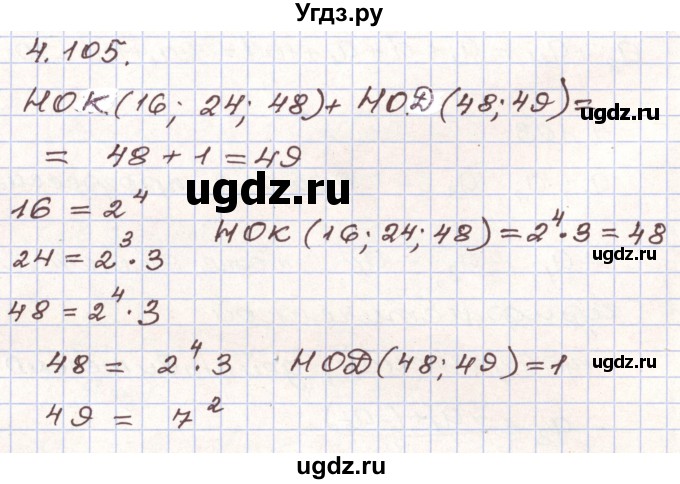 Угдз.ру
4.105.
НОК(16; 24; 48)+ НОД(48; 49)=
ugdz.ru
= 48 + 1 = 49
ugdz.ru
16 = 2⁴
24 = 2³·3 НОК(16; 24; 48)=2⁴·3=48
ugdz.ru
48 = 2⁴·3
48 = 2⁴·3 НОД(48; 49)=1
ugdz.ru
49 = 7²
ugdz.ru